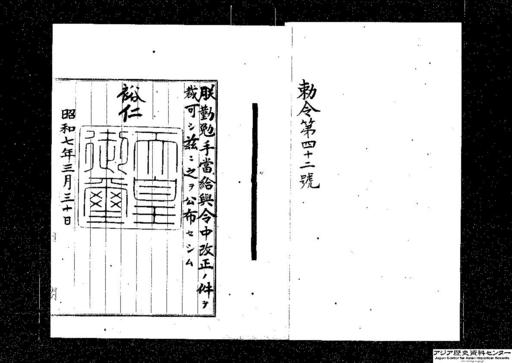 勅令第四十二號
朕勤勉手當給與令中改正ノ件ヲ
裁可シ茲ニ之ヲ公布セシム
裕仁
天皇
御璽
昭和七年三月三十日
アジア歴史資料センター
Japan Center for Asian Historical Records